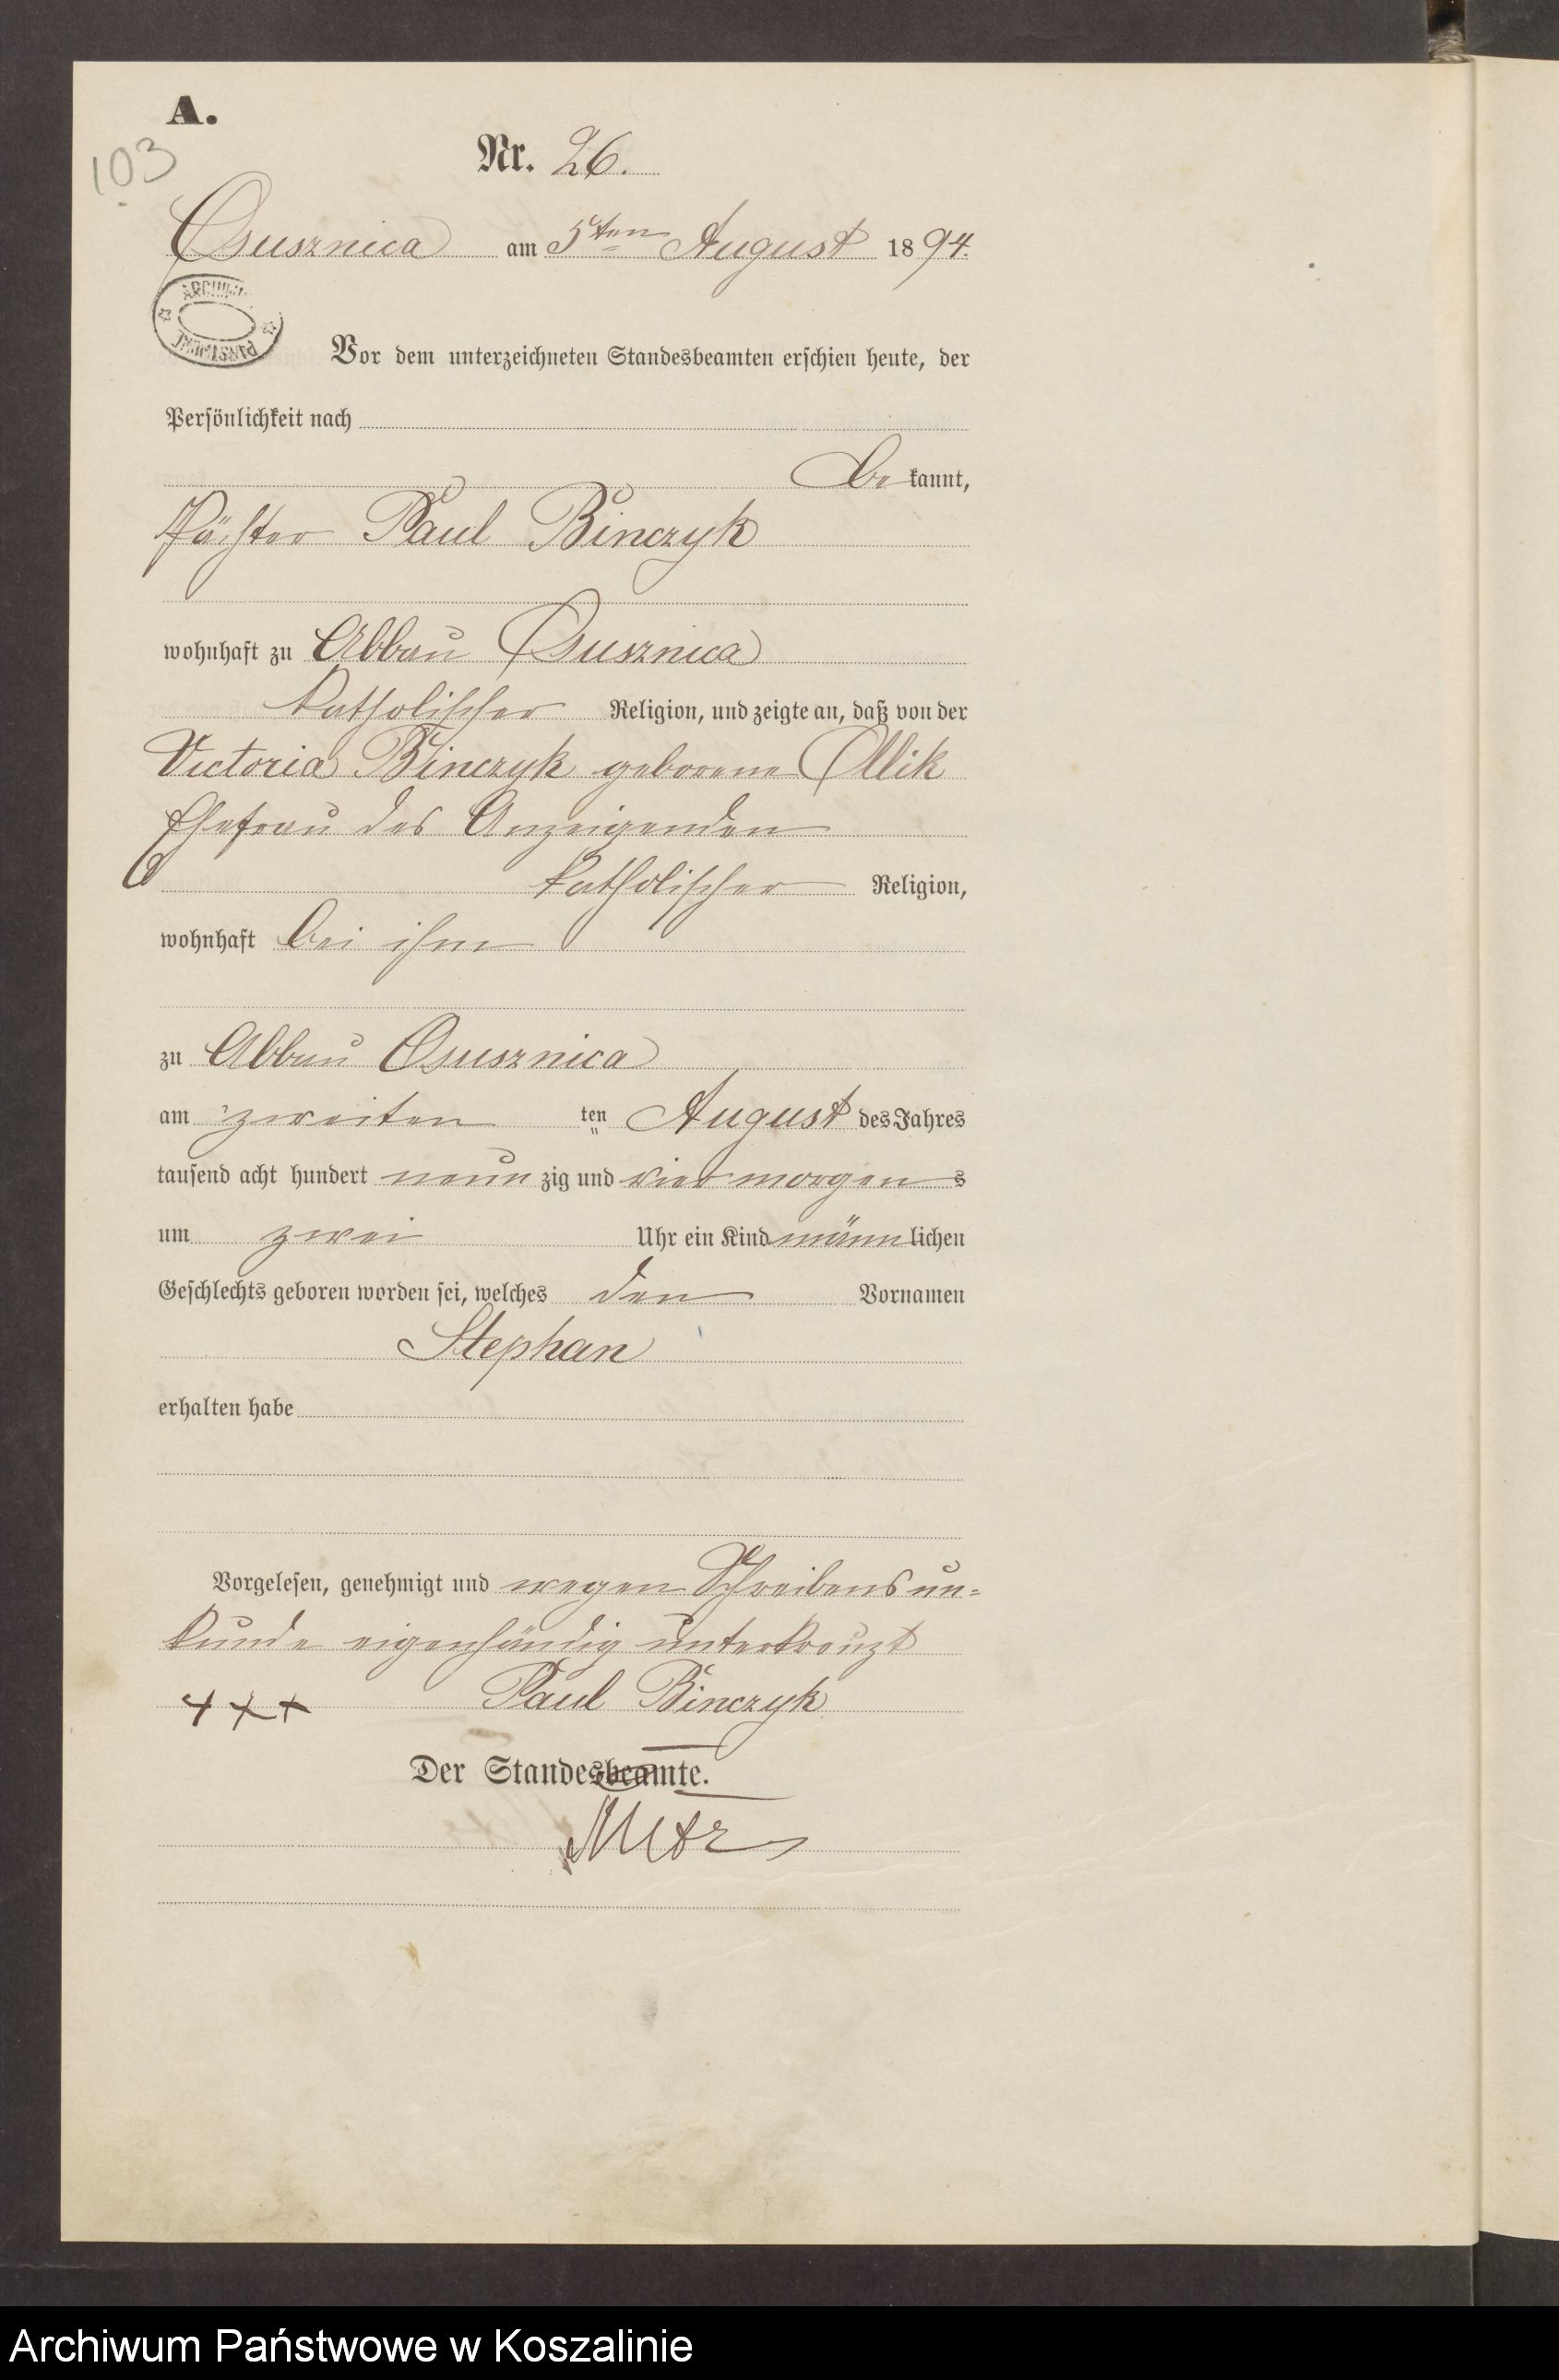 A.
103
Nr. 26.
Osusznica am 5ten August 1894.
ARCHIWUM PAŃSTWOWE
Vor dem unterzeichneten Standesbeamten erschien heute, der
Persönlichkeit nach
bekannt,
Pächter Paul Binczyk
wohnhaft zu Abbau Osusznica
katholischer Religion, und zeigte an, daß von der
Victoria Binczyk geborene Ollik
Ehefrau des Anzeigenden
katholischer Religion,
wohnhaft bei ihm
zu Abbau Osusznica
am zweiten ten August des Jahres
tausend acht hundert neunzig und vier morgens
um zwei Uhr ein Kind männlichen
Geschlechts geboren worden sei, welches den Vornamen
Stephan
erhalten habe
Vorgelesen, genehmigt und wegen Schreibensun-
kunde eigenhändig unterkreuzt
+++ Paul Binczyk
Der Standesbeamte.
Archiwum Państwowe w Koszalinie